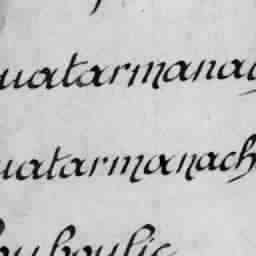 uatarmanay
uatarmanach
ouboulic